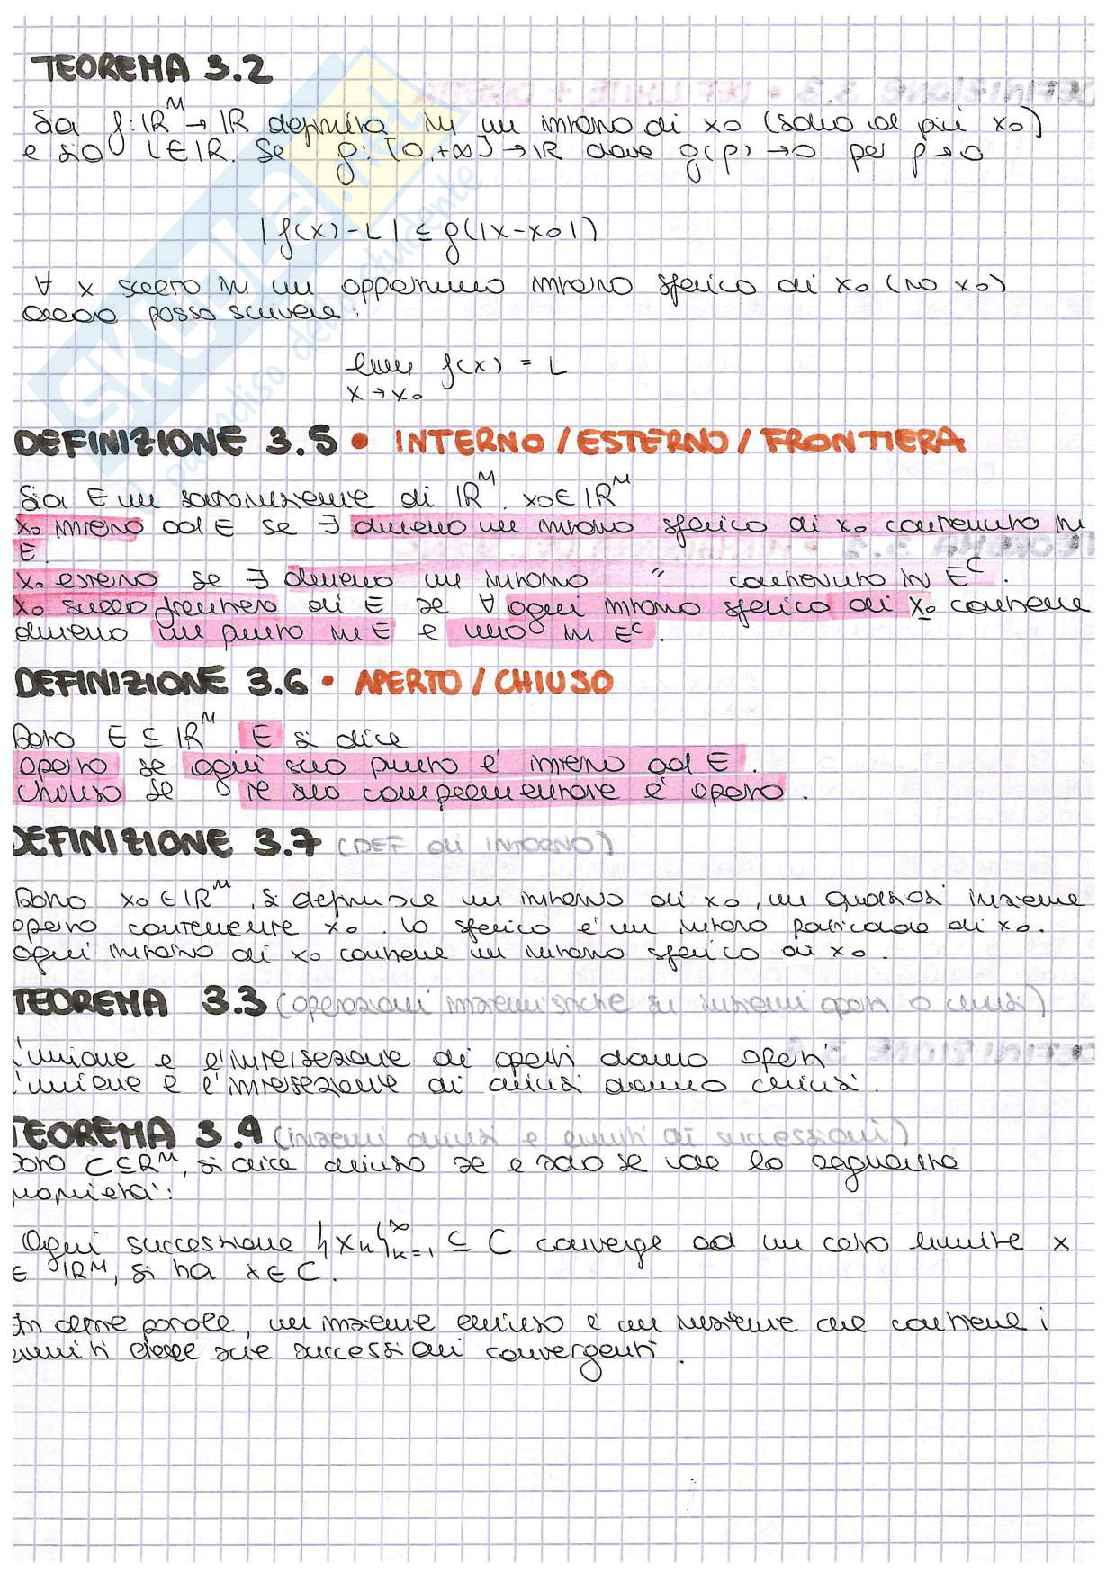 TEOREMA 3.2
Sia f: ℝᴹ → ℝ definita in un intorno di x₀ (salvo al più x₀)
e sia L ∈ ℝ. Se g: [0,+∞] → ℝ dove g(ρ) → 0 per ρ → 0
|f(x) - L| ≤ g(|x-x₀|)
∀ x scelto in un opportuno intorno sferico di x₀ (no x₀)
allora posso scrivere:
lim f(x) = L
x → x₀
DEFINIZIONE 3.5 • INTERNO / ESTERNO / FRONTIERA
Sia E un sottoinsieme di ℝᴹ. x₀ ∈ ℝᴹ
x₀ interno ad E se ∃ almeno un intorno sferico di x₀ contenuto in
E.
x₀ esterno se ∃ almeno un intorno " contenuto in Eᶜ.
x₀ sulla frontiera di E se ∀ ogni intorno sferico di x₀ contiene
almeno un punto in E e uno in Eᶜ.
DEFINIZIONE 3.6 • APERTO / CHIUSO
Dato E ⊆ ℝᴹ E si dice
aperto se ogni suo punto è interno ad E.
chiuso se il suo complementare è aperto.
DEFINIZIONE 3.7 (DEF di INTORNO)
Dato x₀ ∈ ℝᴹ, si definisce un intorno di x₀, un qualsiasi insieme
aperto contenente x₀. Lo sferico è un intorno particolare di x₀.
Ogni intorno di x₀ contiene un intorno sferico di x₀.
TEOREMA 3.3 (operazioni insiemistiche su insiemi aperti o chiusi)
L'unione e l'intersezione di aperti danno aperti
L'unione e l'intersezione di chiusi danno chiusi.
TEOREMA 3.4 (insiemi chiusi e limiti di successioni)
Dato C ⊆ ℝᴹ, si dice chiuso se e solo se vale la seguente
proprietà:
Ogni successione {xₙ}ₙ₌₁^∞ ⊆ C converge ad un certo limite x
∈ ℝᴹ, si ha x ∈ C.
In altre parole, un insieme chiuso è un insieme che contiene i
limiti delle sue successioni convergenti.